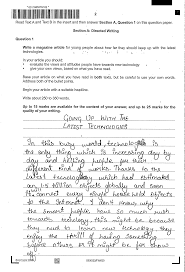 2
Read Text A and Text B in the insert and then answer Section A, Question 1 on this question paper.
Section A: Directed Writing
Question 1
Write a magazine article for young people about how far they should keep up with the latest technologies.
In your article you should:
• evaluate the views and attitudes people have towards new technology
• give your own views, based on what you have read.
Base your article on what you have read in both texts, but be careful to use your own words.
Address both of the bullet points.
Begin your article with a suitable headline.
Write about 250 to 350 words.
Up to 15 marks are available for the content of your answer, and up to 25 marks for the quality of your writing.
GOING UP WITH THE
LATEST TECHNOLOGIES
In this busy world, technology is
the only thing which is increasing day by
day and helping people in their
different kind of works. Thanks to the
latest technology which had estimated
billion objects globally and soon
connect every single
to the Internet. I don't know why
the people have so much
towards technology. this might be because
they want to learn new technology they
enjoy the thrill of having something
others or it might be for show
off.